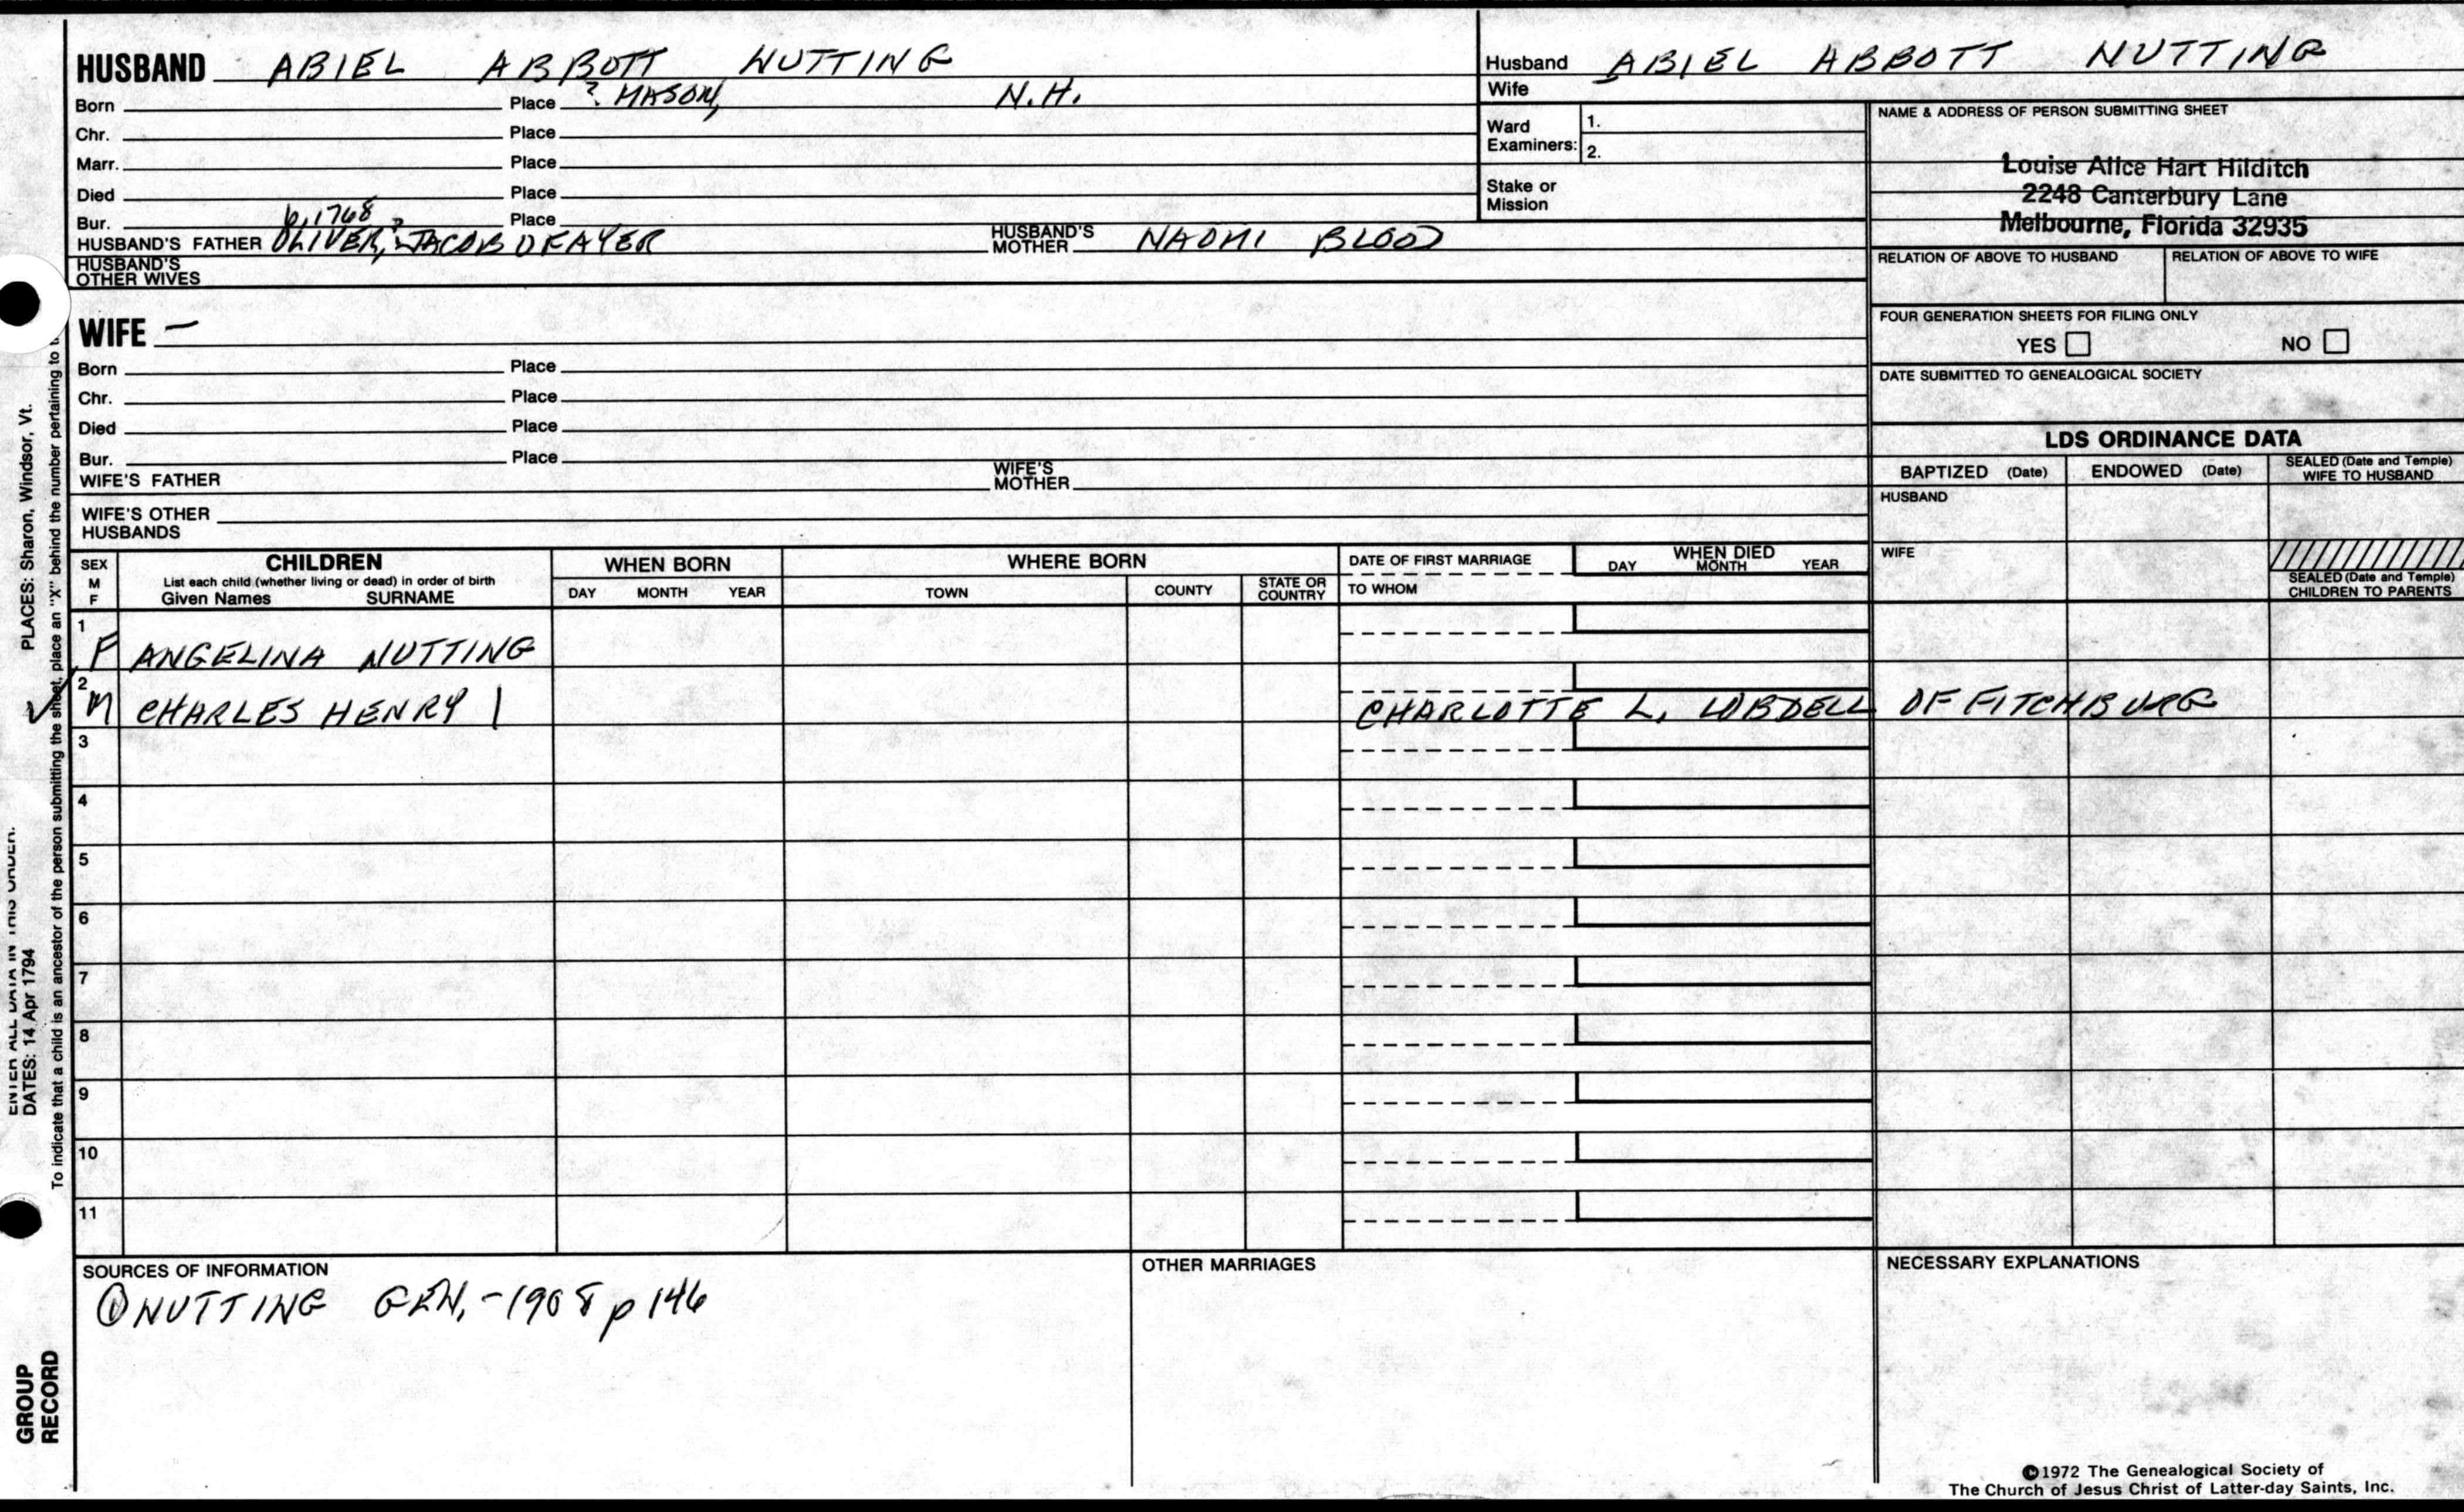 HUSBAND ABIEL ABBOTT NUTTING
Born Place ? MASON, N.H.
Chr. Place
Marr. Place
Died Place
Bur. Place
b. 1768
HUSBAND'S FATHER OLIVER, JACOB OF AYER HUSBAND'S MOTHER NAOMI BLOOD
HUSBAND'S OTHER WIVES
Husband ABIEL ABBOTT NUTTING
Wife
Ward Examiners: 1.
2.
Stake or Mission
NAME & ADDRESS OF PERSON SUBMITTING SHEET
Louise Alice Hart Hilditch
2248 Canterbury Lane
Melbourne, Florida 32935
RELATION OF ABOVE TO HUSBAND RELATION OF ABOVE TO WIFE
FOUR GENERATION SHEETS FOR FILING ONLY
YES NO
DATE SUBMITTED TO GENEALOGICAL SOCIETY
WIFE —
Born Place
Chr. Place
Died Place
Bur. Place
WIFE'S FATHER WIFE'S MOTHER
WIFE'S OTHER HUSBANDS
LDS ORDINANCE DATA
BAPTIZED (Date) ENDOWED (Date) SEALED (Date and Temple) WIFE TO HUSBAND
HUSBAND
WIFE
SEALED (Date and Temple) CHILDREN TO PARENTS
SEX M F
CHILDREN
List each child (whether living or dead) in order of birth
Given Names SURNAME
WHEN BORN
DAY MONTH YEAR
WHERE BORN
TOWN COUNTY STATE OR COUNTRY
DATE OF FIRST MARRIAGE
TO WHOM
WHEN DIED
DAY MONTH YEAR
1 F ANGELINA NUTTING
2 M CHARLES HENRY | CHARLOTTE L. LOBDELL OF FITCHBURG
3
4
5
6
7
8
9
10
11
SOURCES OF INFORMATION
① NUTTING GEN, -1908 p 146
OTHER MARRIAGES
NECESSARY EXPLANATIONS
©1972 The Genealogical Society of
The Church of Jesus Christ of Latter-day Saints, Inc.
ENTER ALL DATA IN THIS ORDER:
DATES: 14 Apr 1794 PLACES: Sharon, Windsor, Vt.
To indicate that a child is an ancestor of the person submitting the sheet, place an "X" behind the number pertaining to
GROUP
RECORD